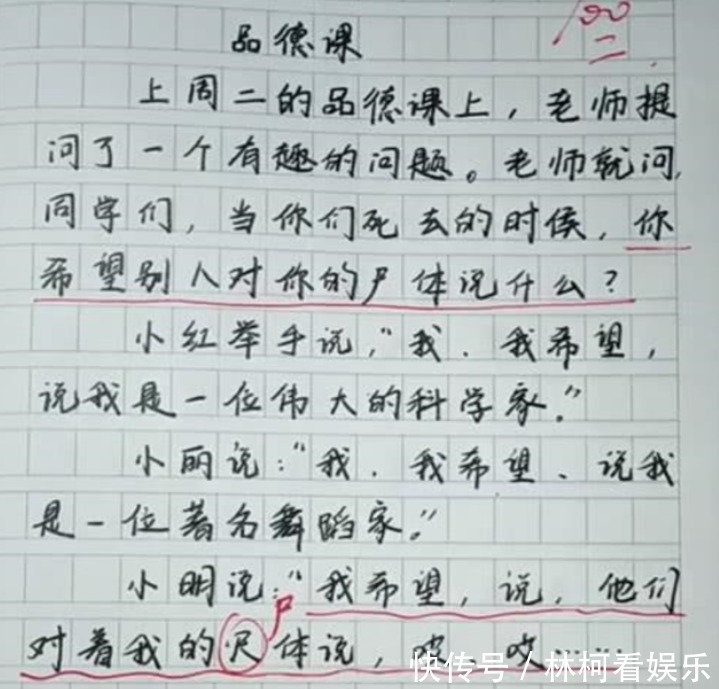 品德课
100
上周二的品德课上，老师提
问了一个有趣的问题。老师就问，
同学们，当你们死去的时候，你
希望别人对你的尸体说什么？
小红举手说，“我．我希望，
说我是一位伟大的科学家。”
小丽说：“我．我希望、说我
是一位著名舞蹈家。”
小明说：“我希望，说，他们
尸
对着我的尺体说，
快传号/林柯看娱乐